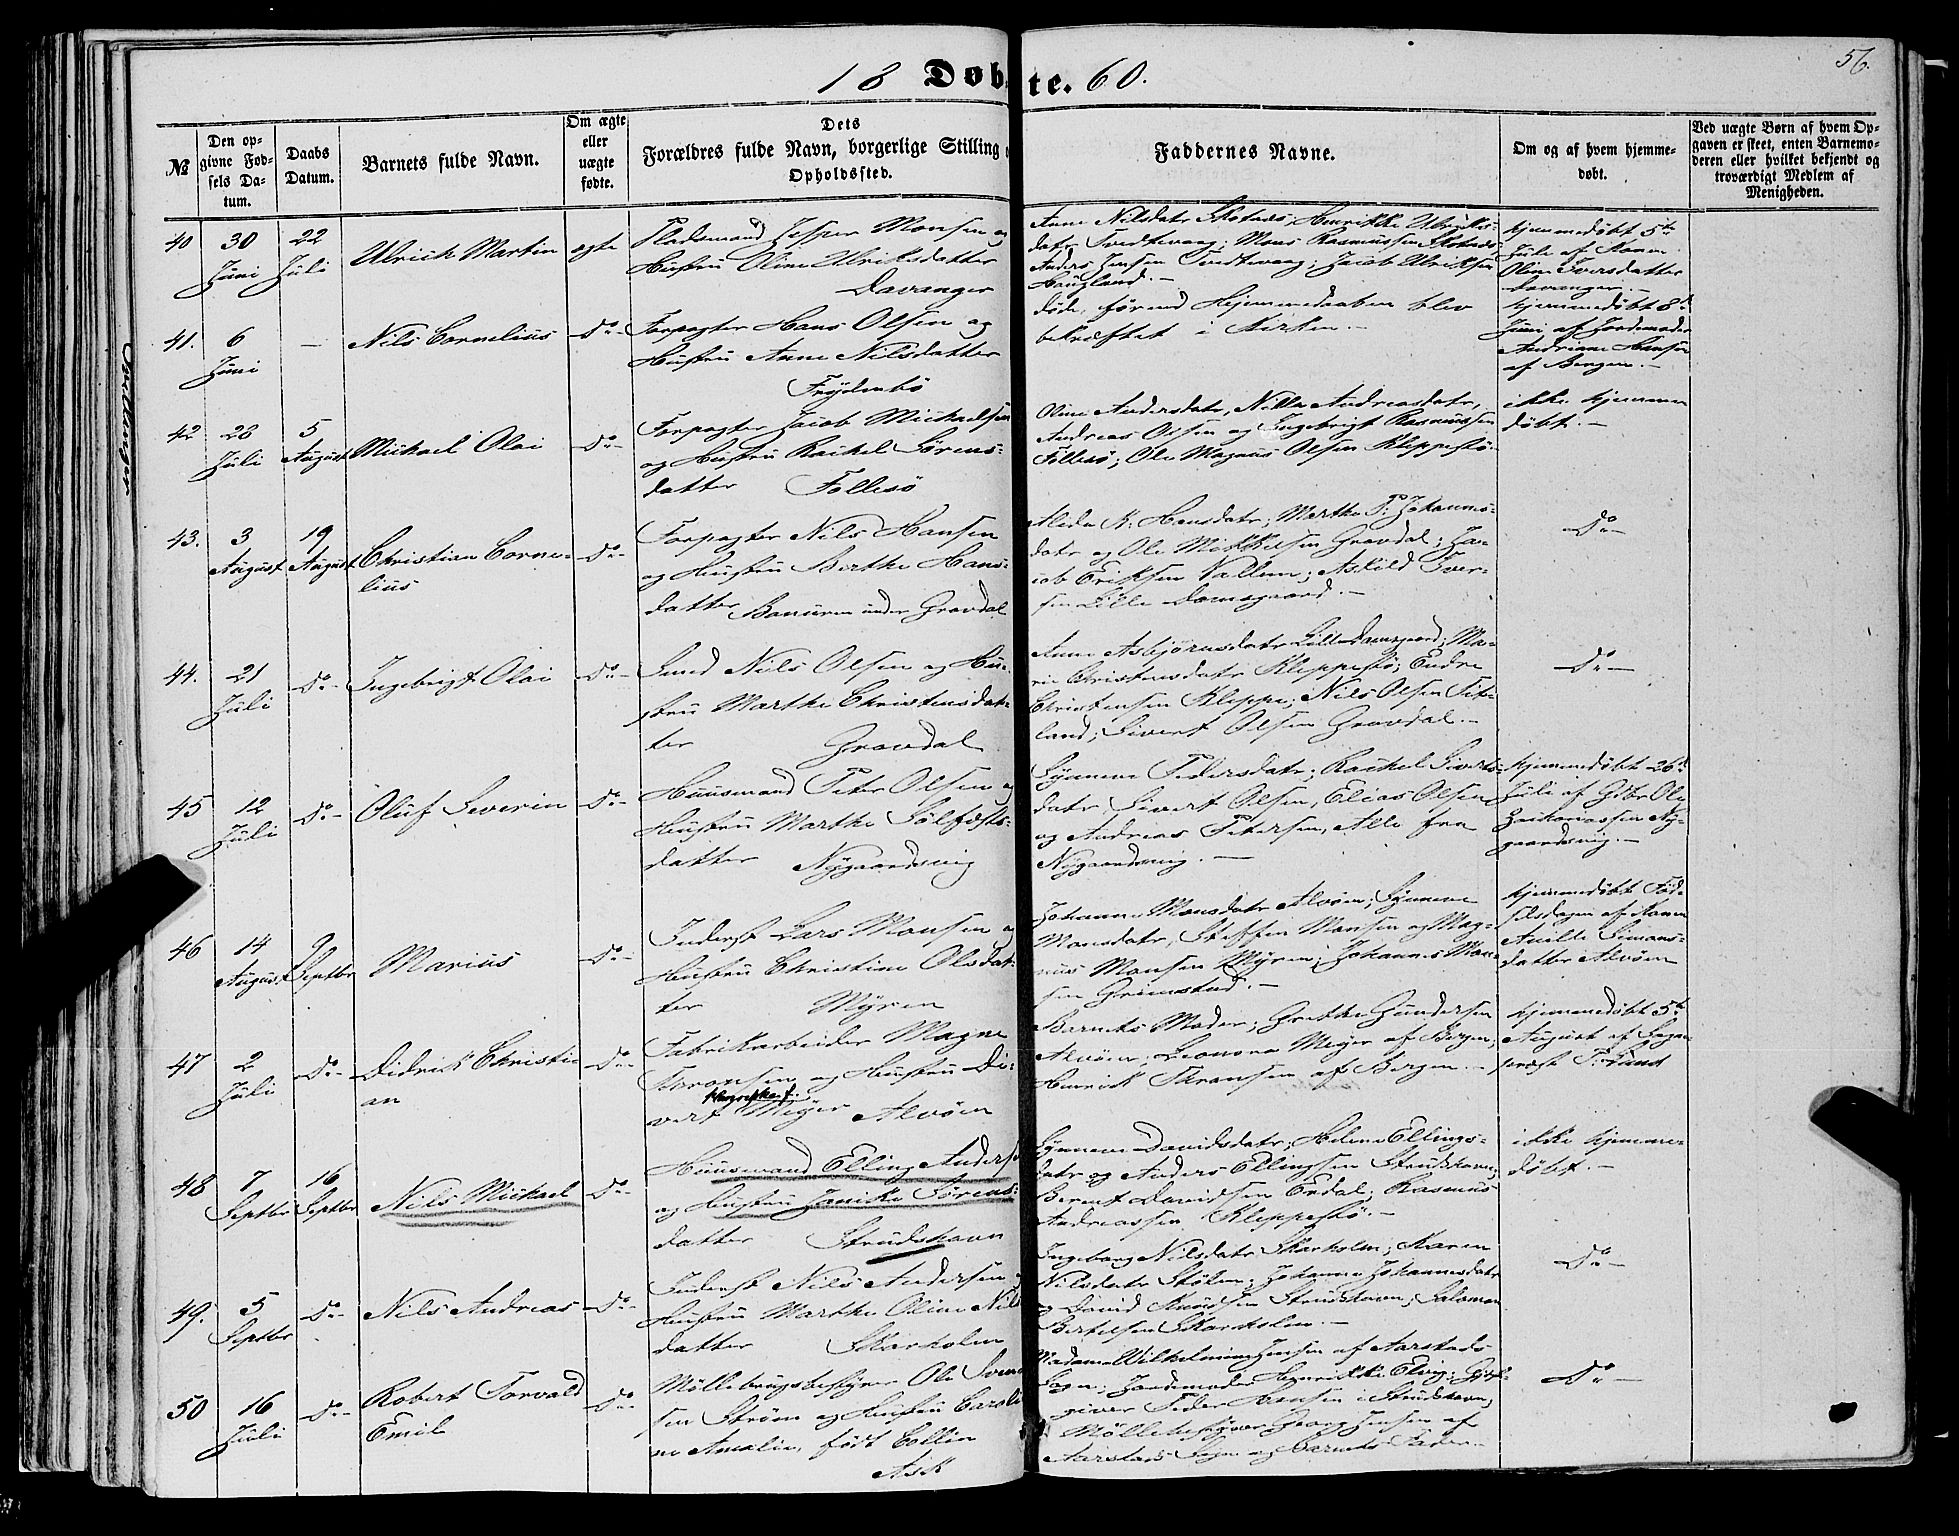 56.
18 Døbte. 60.
№
Den opgivne Fødsels Datum.
Daabs Datum.
Barnets fulde Navn.
Om ægte eller uægte fødte.
Dets Forældres fulde Navn, borgerlige Stilling o
Opholdssted.
Faddernes Navne.
Om og af hvem hjemmedøbt.
Ved uægte Børn af hvem Opgaven er skeet, enten Barnemoderen eller hvilket bekjendt og troværdigt Medlem af Menigheden.
40
30 Juni
22 Juli
Ulrich Martin
ægte
Pladsmand Jesper Monsen og
Hustru Oline Ulriksdatter
Davanger
Anne Nilsdatr Skotnes, Henrikke Ulriks-
datr Tvedtevaag; Mons Rasmussen Skotnes
Anders Jensen Tvedtevaag; Jacob Ulriksen
Haugland.-
hjemmedøbt 5te
Juli af Konen
Oline Iversdatter
Davanger.-
41.
6 Juni
-
Nils Cornelius
Do-
Forpagter Hans Olsen og
Hustru Anne Nilsdatter
Frydenbö
døde, førend Hjemmedaaben blev
bekræftet i Kirken.-
hjemmedøbt 8de
Juni af Jordemoder
Andriane Hansen
af Bergen.-
42
28 Juli
5 August
Michael Olai
Do-
Forpagter Jacob Michaelsen
og Hustru Rachel Sörens-
datter Follesö
Oline Andersdatr, Nille Andreasdatr,
Andreas Olsen og Ingebrigt Rasmussen
Follesö; Ole Magnus Olsen Kleppestö.
ikke hjemme
døbt.-
43.
3 August
19 August
Christian Corne-
lius
Do-
Forpagter Nils Hansen
og Hustru Berthe Hans-
datter Banuren under Gravdal
Alida N. Hansdatr; Marthe P. Johanns-
datr og Ole Mikkelsen Gravdal; Ja-
cob Eriksen Vallem; Askild Iver-
sen Lille Damsgaard.-
Do-
44.
21 Juli
Do-
Ingebrigt Olai
Do-
Smed Nils Olsen og Hu-
stru Marthe Christensdat-
ter Gravdal
Anne Asbjörnsdatr Lille Damsgaard; Ma-
rie Christensdatr Kleppestö; Endre
Christensen Kleppe; Nils Olsen Tite-
land; Sivert Olsen Gravdal.-
Do-
45
12 Juli
Do-
Oluf Severin
Do-
Huusmand Peter Olsen og
Hustru Marthe Sölfests-
datter Nygaardsvig
Synneve Pedersdatr; Rachel Siverts-
datr, Sivert Olsen, Elias Olsen
og Andreas Petersen, Alle fra
Nygaardsvig.-
hjemmedøbt 26de
Juli af Gdbr Ole
Zachariassen Ny-
gaardsvig.-
46
14 August
9 Septbr
Marius
Do-
Inderst Lars Monsen og
Hustru Christine Olsdat-
ter Myren
Johanne Monsdatr Alvöen; Synneve
Monsdatr, Steffen Monsen og Mag-
nus Monsen Myren; Johannes Mon-
sen Grimstad.-
hjemmedøbt Föd-
selsdagen af Konen
Anille Simons-
datter Alvöen
47
2 Juli
Do-
Didrik Christi-
an
Do-
Fabrikarbeider Magne
Thronsen og Hustru Di-
vert Meyer Alvöen
Barnets Moder; Grethe Gundersen
Alvöen; Leonora Meyer af Bergen;
Henrik Thronsen af Bergen.-
hjemmedøbt 5te
August af Sogne-
præst P. Lund
48
7 Septbr
16 Septbr
Nils Michael
Do-
Huusmand Elling Anders
og Hustru Janikke Sörens-
datter Strudshavn
Synneve Davidsdatr; Helene Ellings-
datr og Anders Ellingsen Strudshavn;
Berent Davidsen Erdal; Rasmus
Andreassen Kleppestö.-
ikke hjemme-
døbt.-
49.
5 Septbr
Do-
Nils Andreas
Do-
Inderst Nils Andersen o
Hustru Marthe Oline Nils
datter Skarholm
Ingeborg Nilsdatr Skarholm; Karen
Nilsdatr Stölen; Johanne Johannesdatr
og David Knudsen Strudshavn; Salomon
Bertelsen Skarholm.-
Do-
50
16 Juli
Do-
Robert Torvald
Emil
Do-
Möllebrugsbestyrer Ole Svend
sen Ström og Hustru Caroli
ne Amalie, född Collin
Ask
Madame Wilhelmine Jensen af Aarstads
Sogn; Jordemoder Henrikke Eling; Gjest-
giver Peder Hansen i Strudshavn;
Möllebestyrer Georg Jensen af
Aarstads Sogn og Barnets Fader.-
Do-